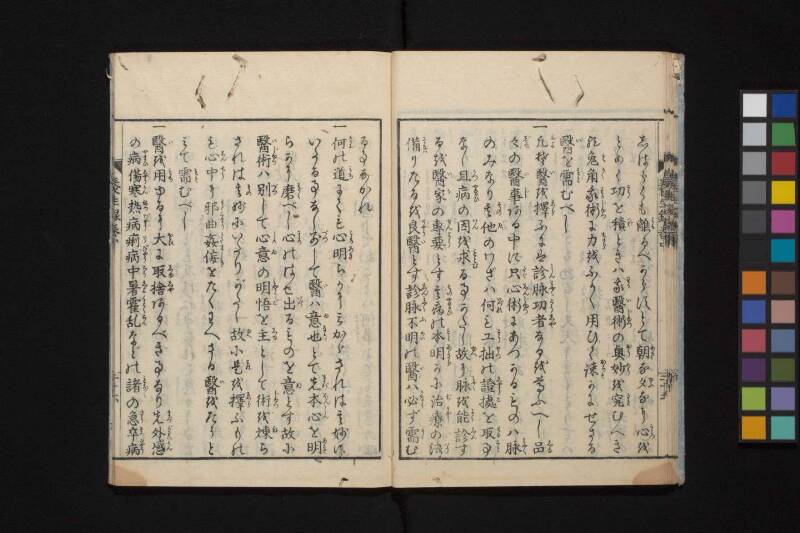 しばらくも離るべからず依て朝な夕なに心を
とめて功を積ときハ我醫術の奥妙を究むべき
兎角我術に力をふかく用ひて疎かにせざる
醫を需むべし
一凡拙醫を擇ふにハ診脉功者なるを尊ふへし品
々の醫事ある中に只心術にあつかるものハ脉
のみなり其他のワざハ何も工拙の證據を取事
なし且病の因を求る事かたし故に脉を能診す
るを醫家の專要とす其病の本明かに治療の法
備りたるを良醫とす診脉不明の醫ハ必す需む
る事なかれ
一何の道にても心明らかならざれは其妙に
いたる事なし別して醫ハ意也とて先本心を明
らかに磨べし心のはせ出るものを意とす故に
醫術ハ別して心意の明悟を主として術を煉ら
されは其妙にいたりがたし故に是を擇ふもの
も心中に邪曲姦侫をたくわへさる醫をたつと
みて需むべし
一醫を用ゆるに大に取捨あるべき事なり先外感
の病傷寒熱病痢病中暑霍乱などの諸の急卒病